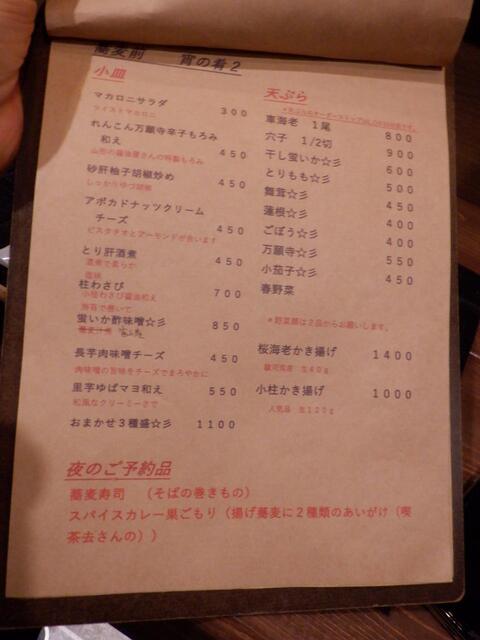 蕎麦前　宵の肴２
小皿
マカロニサラダ　３００
ツイストマカロニ
れんこん万願寺辛子もろみ
和え　４５０
山形の醤油屋さんの特製もろみ
砂肝柚子胡椒炒め　４５０
しっかりゆづ胡椒
アボカドナッツクリーム
チーズ　４５０
ピスタチオとアーモンドが合います
とり肝酒煮　４５０
濃煮で柔らか
塩味
柱わさび　７００
小柱わさび醤油和え
海苔で巻いて
蛍いか酢味噌☆彡　８５０
長芋肉味噌チーズ　４５０
肉味噌の旨味をチーズでまろやかに
里芋ゆばマヨ和え　５５０
和風なクリーミーさで
おまかせ３種盛☆彡　１１００
天ぷら
車海老　１尾　８００
穴子　１/２切　９００
干し蛍いか☆彡　６００
とりもも☆彡　５００
舞茸☆彡　４５０
蓮根☆彡　４００
ごぼう☆彡　４００
万願寺☆彡　５５０
小茄子☆彡　４５０
春野菜
＊野菜類は２品からお願いします。
桜海老かき揚げ　１４００
駿河湾産　生４０ｇ
小柱かき揚げ　１０００
人気品　生１２５ｇ
夜のご予約品
蕎麦寿司　（そばの巻きもの）
スパイスカレー巣ごもり（揚げ蕎麦に２種類のあいがけ（喫
茶去さんの））